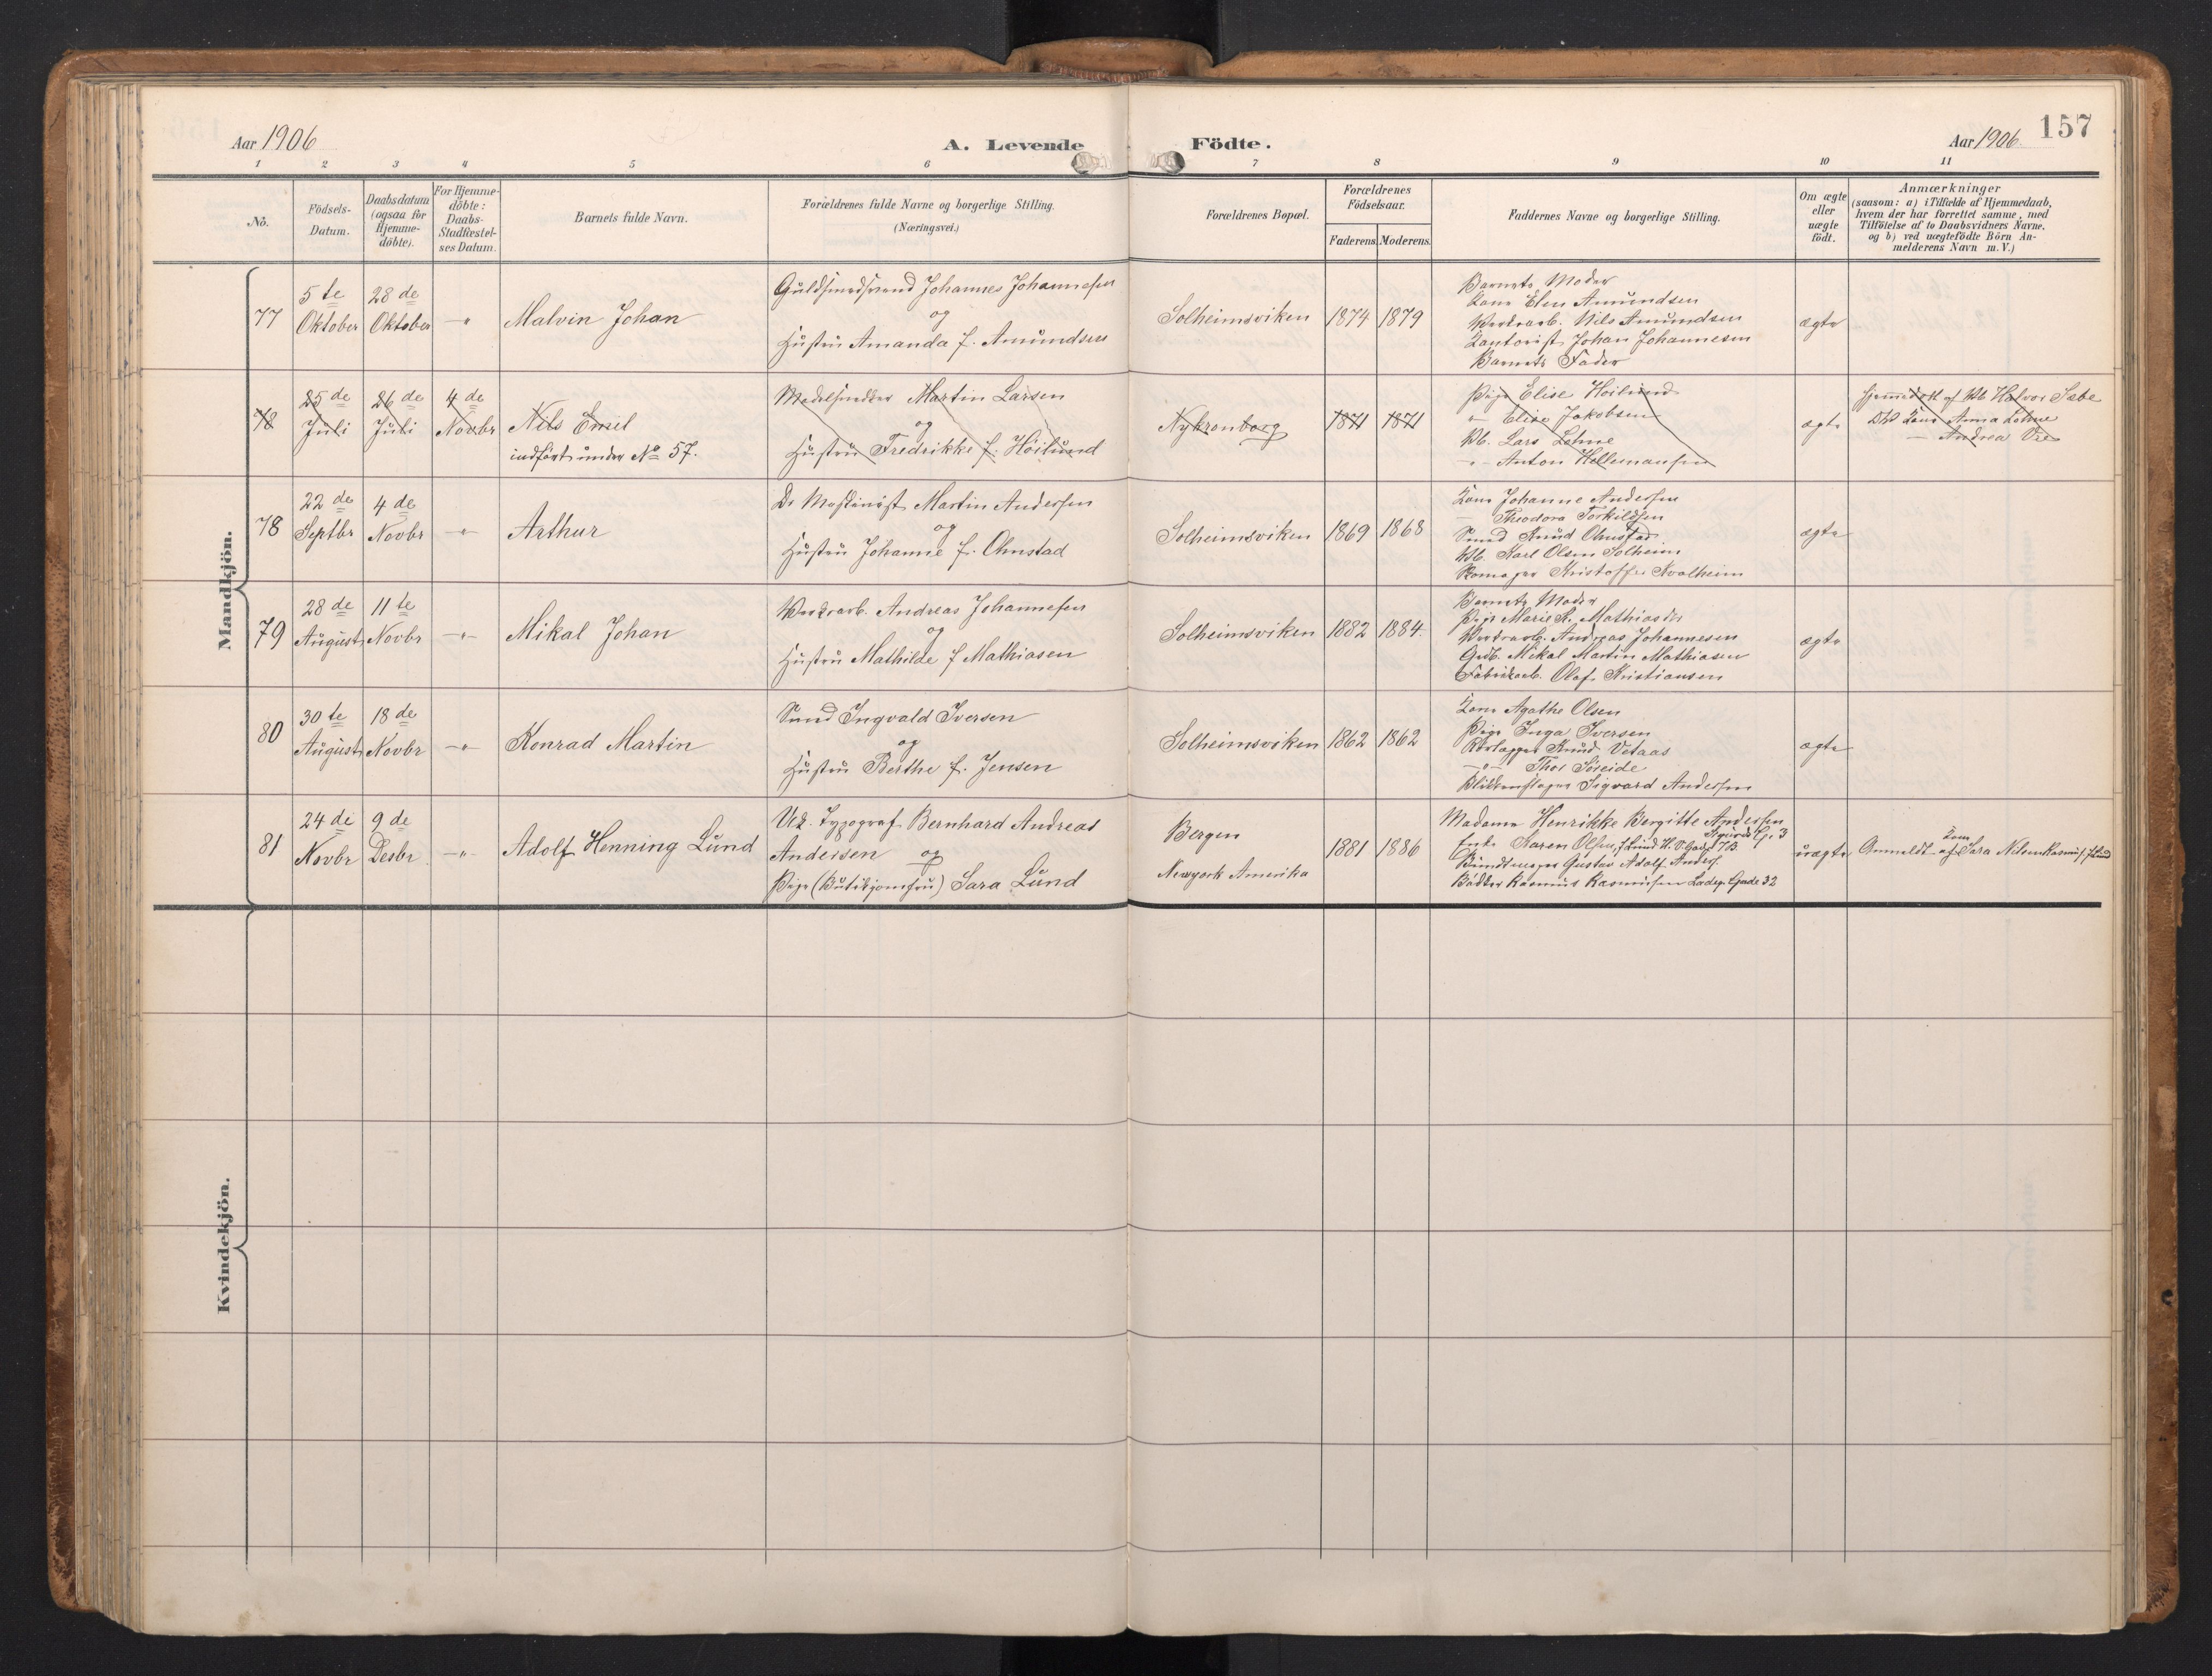 Aar 1906
A. Levende
Födte.
Aar 1906.
157
1 2 3 4 5 6 7 8 9 10 11
No.
Födsels-
Datum.
Daabsdatum
(ogsaa för
Hjemme-
döbte).
For Hjemme-
döbte:
Daabs-
Stadfæstel-
ses Datum.
Barnets fulde Navn.
Forældrenes fulde Navne og borgerlige Stilling.
(Næringsvei.)
Forældrenes Bopæl.
Forældrenes
Födselsaar.
Faderens. Moderens.
Faddernes Navne og borgerlige Stilling.
Om ægte
eller
uægte
födt.
Anmærkninger
(saasom: a) i Tilfælde af Hjemmedaab,
hvem der har forrettet samme, med
Tilföielse af to Daabsvidners Navne.
og b) ved uægtefödte Börn An-
melderens Navn m. V.)
Mandkjön.
77
5te
Oktober
28de
Oktober
-"-
Malvin Johan
Guldsmedsvend Johannes Johannesen
og
Hustru Amanda f. Amundsen
Solheimsviken
1874
1879
Barnets Moder
Kone Elen Amundsen
Verksarb. Nils Amundsen
Kontorist Johan Johannesen
Barnets Fader
ægte
78
25de
Juli
26de
Juli
4de
Novbr
Nils Emil
indført under No 57.
Modelsnedker Martin Larsen
og
Hustru Fredrikke f. Höilund
Nykronborg
1871
1871
Pige Elise Höilund
" Elise Jakobsen
Vb. Lars Lohne
-"- Anton
ægte
Hjemmedøbt af Vb Halvor Sæbø
DV Kone Anna Lohne
— Andrea
78
22de
Septbr
4de
Novbr
-"-
Arthur
Maskinist Martin Andersen
og
Hustru Johanne f. Olmstad
Solheimsviken
1869
1868
Kone Johanne Andersen
Theodora Torkildsen
Smed Knud Olmstad
Vb. Karl Olsen Solheim
Skomager Kristoffer Kvalheim
ægte
79
28de
August
11te
Novbr
-"-
Mikal Johan
Verksarb. Andreas Johannesen
og
Hustru Mathilde f Mathiasen
Solheimsviken
1882
1884.
Barnets Moder
Pige Marie K. Mathiasdtr
Verksarb. Andreas Johannesen
Mikal Martin Mathiasen
Fabrikarb. Olaf Kristiansen
ægte
80
30te
August
18de
Novbr
-"-
Konrad Martin
Smed Ingvald Iversen
og
Hustru Berthe f. Jensen
Solheimsviken
1862
1862
Kone Agathe Olsen
Pige Inga Iversen
Knud Vetaas
-"- Thor Söreide
Blikkenslager Sigvard Andersen
ægte
81
24de
Novbr
9de
Desbr
-"-
Adolf Henning Lund
Typograf Bernhard Andreas
Andersen og
Pige (Butikjomfru) Sara Lund
Bergen
Newyork Amerika
1881
1886
Madame Henrikke Bergitte Andersen
Sigurds G. 3
Enke Karen Olsen,
Bundtmager Gustav Adolf Anders.
Bödker Rasmus Rasmussen Ladeg. Gade 32
uægte
Kone
Anmeldt af Sara
Kvindekjön.